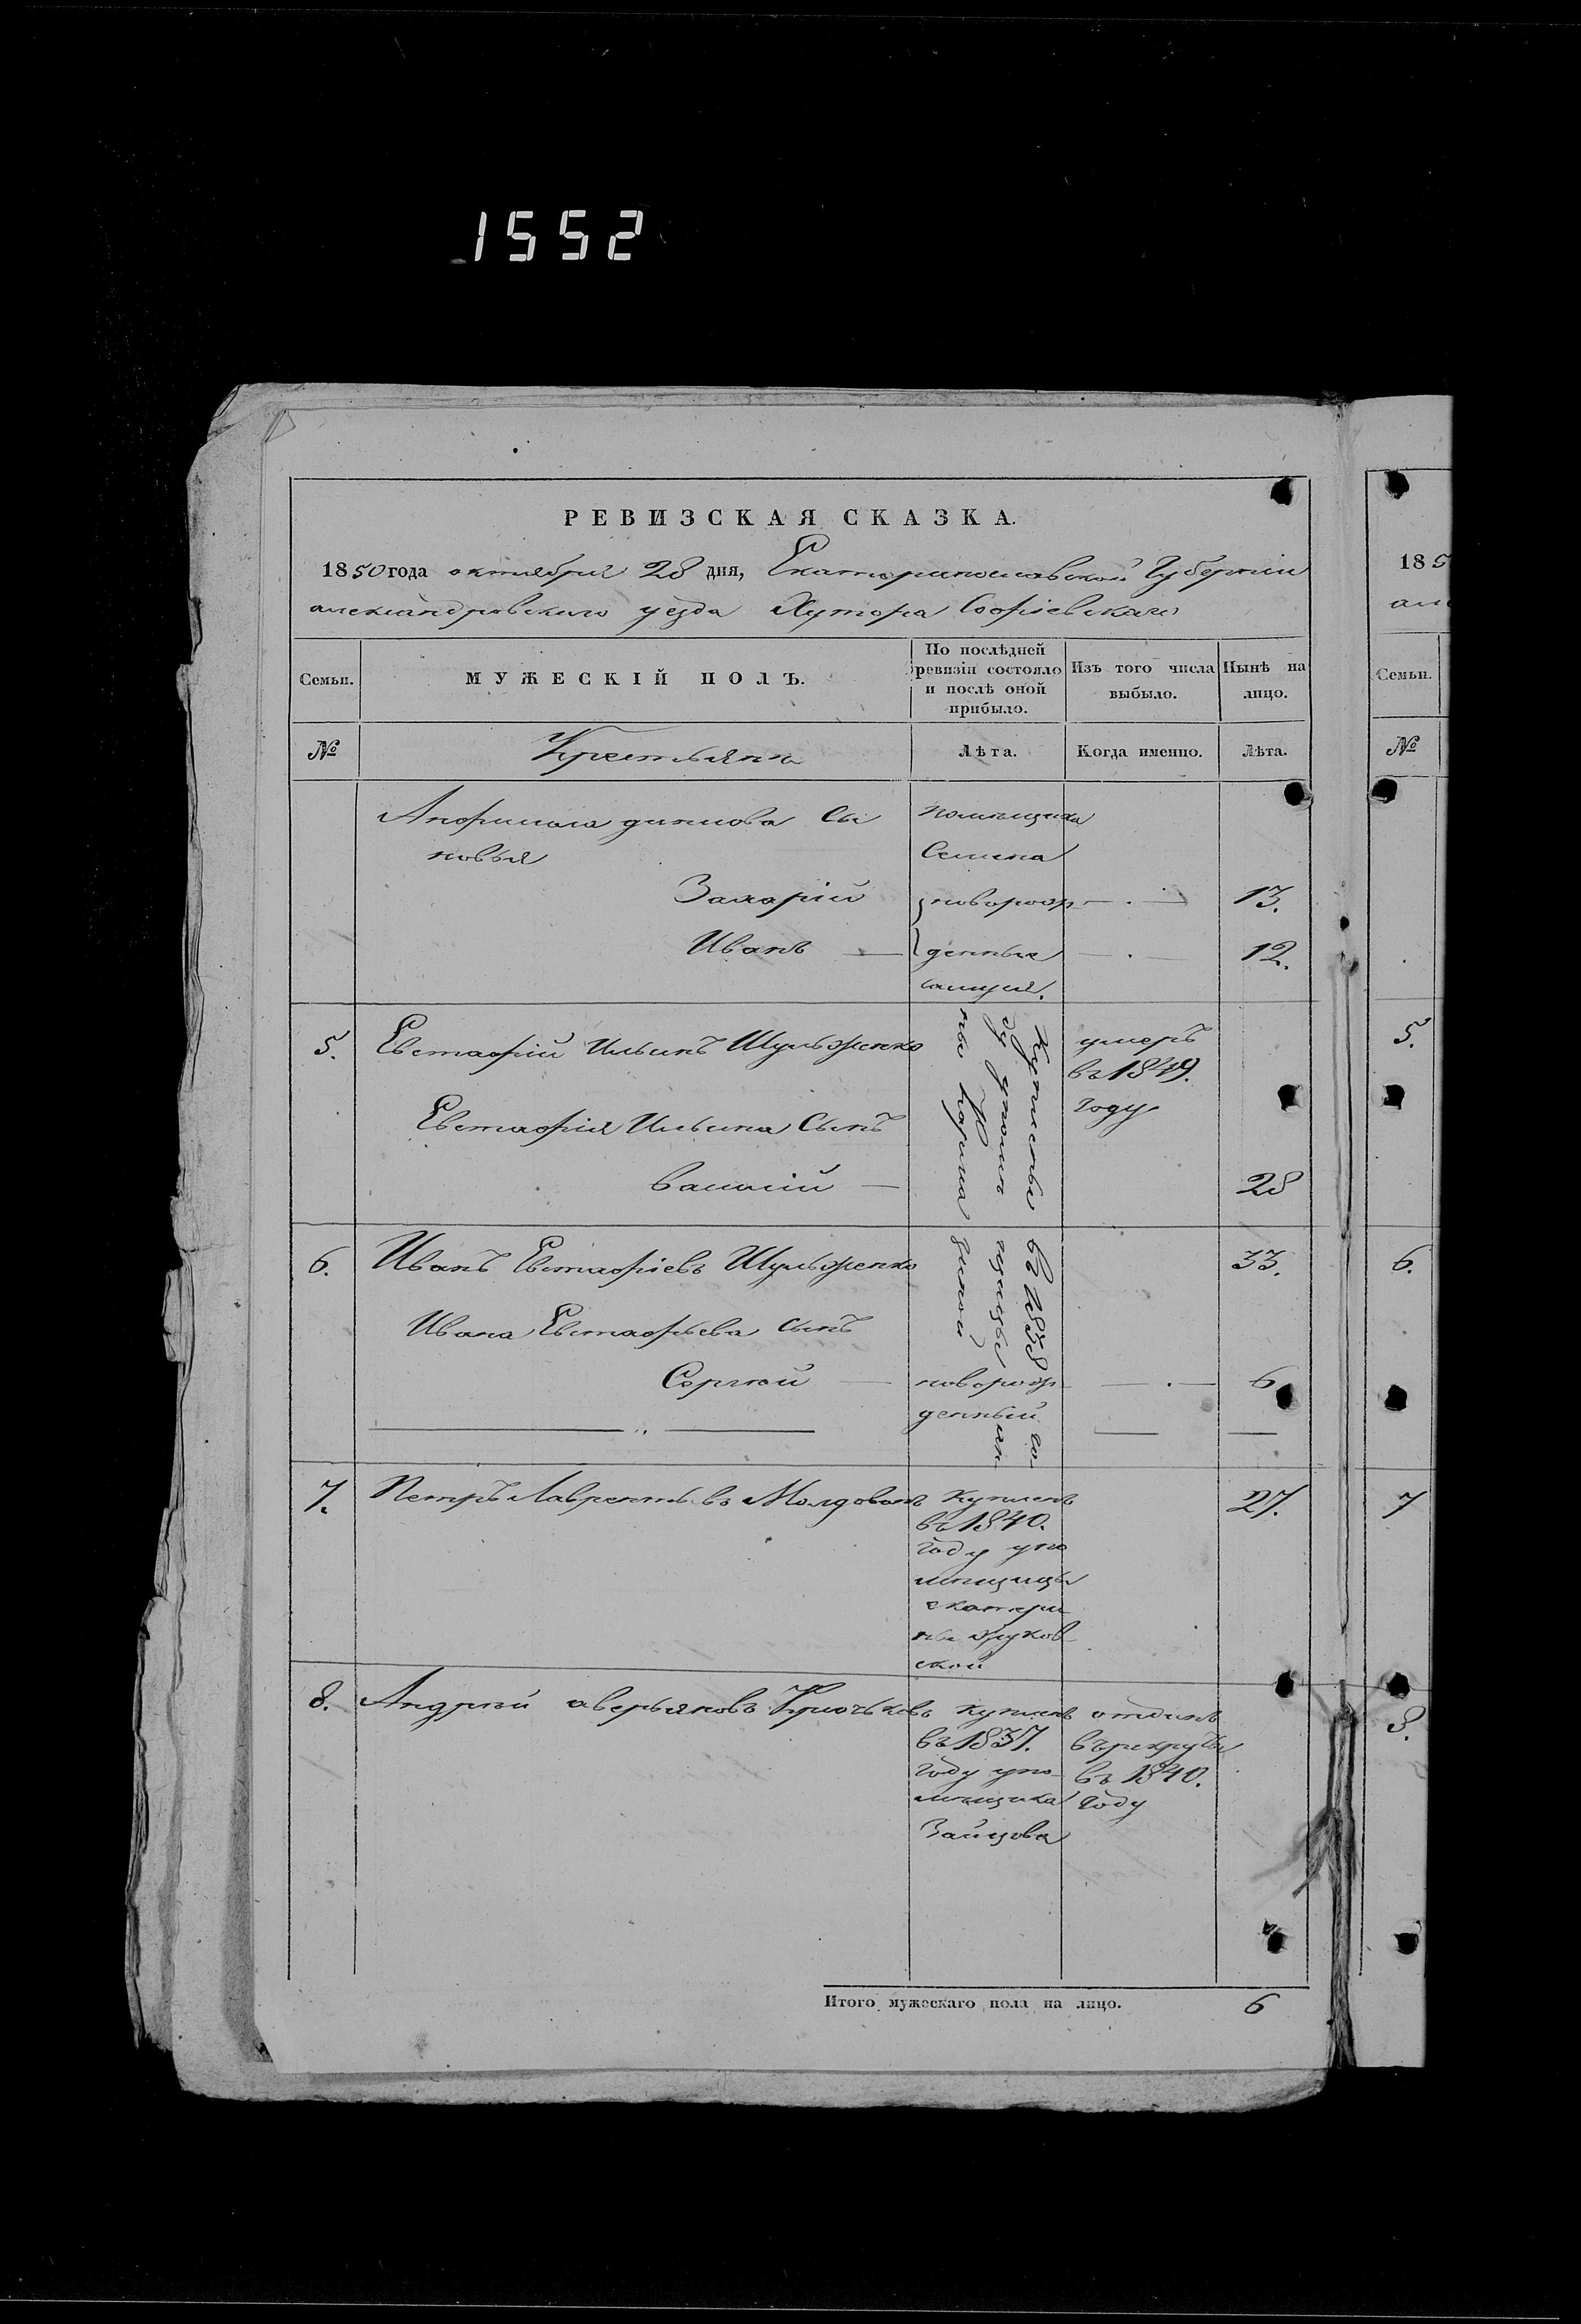 1552
РЕВИЗСКАЯ СКАЗКА.
1850 года октября 28 дня, Екатеринославской Губернии
александровского уезда Хутора Софіевскаго
Семьи.
МУЖЕСКІЙ ПОЛЪ.
По послѣдней ревизіи состояло и послѣ оной прибыло.
Изъ того числа выбыло.
Нынѣ на лицо.
№
Крестьяне
Лѣта.
Когда именно.
Лѣта.
сы помѣщика
новья Семена
Захарій новорож 13.
Иванъ денные 12.
5. Евстафій Ильинъ Шульженко умеръ
въ 1849.
Евстафія Ильина Сынъ году
Василій 28
Куплены въ 1838 го
ду у помѣщицы
6. Иванъ Евстафіевъ Шульженко 33.
Ивана Евстафьева сынъ
Сергѣй новорож 6
денный
7. Петръ Лаврентьевъ Молдованъ Купленъ 27.
въ 1840.
году у по
мѣщицы
екатери
ны
ской
8. Андрей аверьяновъ Крючковъ Купленъ отданъ
въ 1837. въ рекруты
году у по въ 1840.
мѣщика году
Зайцова
Итого мужескаго пола на лицо. 6
185
Семьи.
№
5.
6.
7
8.